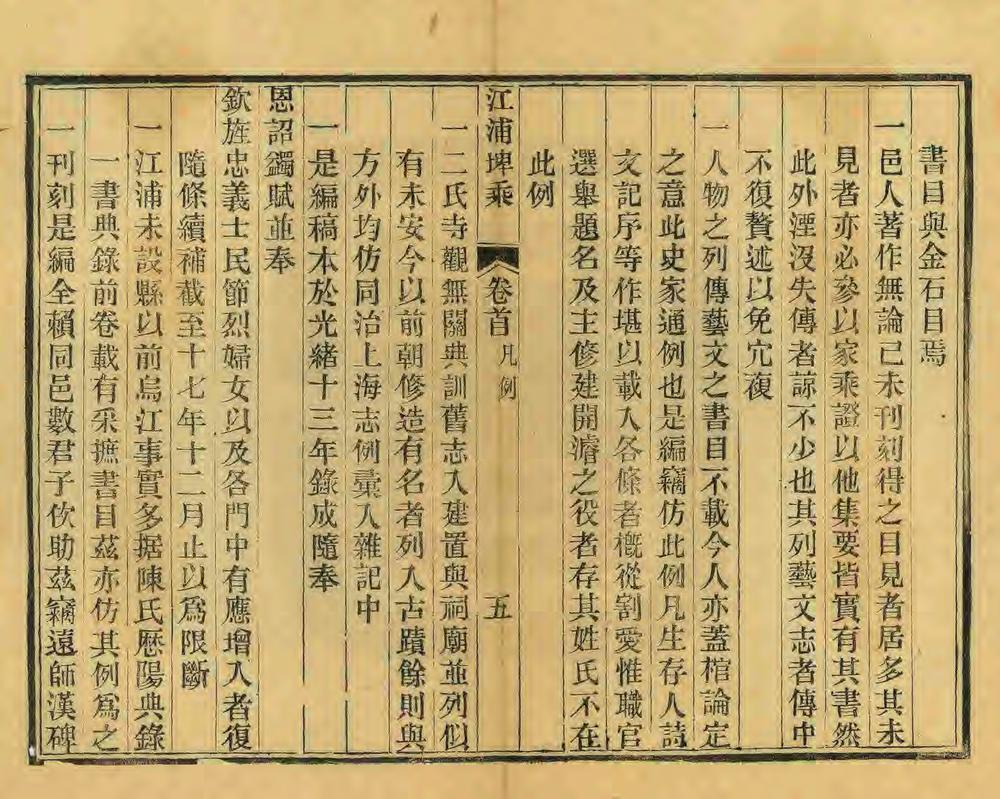 書目與金石目焉
一邑人著作無論已未刊刻得之目見者居多其未
見者亦必參以家乘證以他集要皆實有其書然
此外湮沒失傳者諒不少也其列藝文志者傳中
不復贅述以免冗複
一人物之列傳藝文之書目不載今人亦蓋棺論定
之意此史家通例也是編竊仿此例凡生存人詩
文記序等作堪以載入各條者槪從割愛惟職官
選舉題名及主修建開濬之役者存其姓氏不在
此例
江浦埤乘 卷首 凡例 五
一二氏寺觀無關典訓舊志入建置與祠廟並列似
有未安今以前朝修造有名者列入古蹟餘則與
方外均仿同治上海志例彙入雜記中
一是編稿本於光緒十三年錄成隨奉
恩詔蠲賦並奉
欽旌忠義士民節烈婦女以及各門中有應增入者復
隨條續補截至十七年十二月止以爲限斷
一江浦未設縣以前烏江事實多据陳氏歷陽典錄
一書典錄前卷載有采摭書目茲亦仿其例爲之
一刊刻是編全賴同邑數君子佽助茲竊遠師漢碑